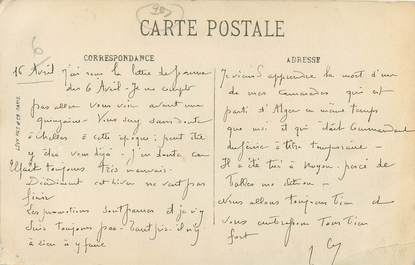 CARTE POSTALE
CORRESPONDANCE
16 Avril J'ai reçu ta lettre
du 6 Avril. Je ne compte
pas aller vous voir avant une
quinzaine. Vous serez sans doute
à cette époque; peut être
y être venu déjà. J'en doute, car
il fait toujours très mauvais.
Décidément cet hiver ne veut pas
finir
Les promotions sont parues et je n'y
suis toujours pas. Tant pis. il n'y
a rien à y faire
ADRESSE
Je viens d'apprendre la mort d'un
de mes camarades qui est
parti d'Alger en même temps
que moi et qui était Commandant
du génie à titre temporaire.
Il a été tué à Noyon. percé de
balles
Nous allons toujours bien et
vous embrassons tous bien
fort